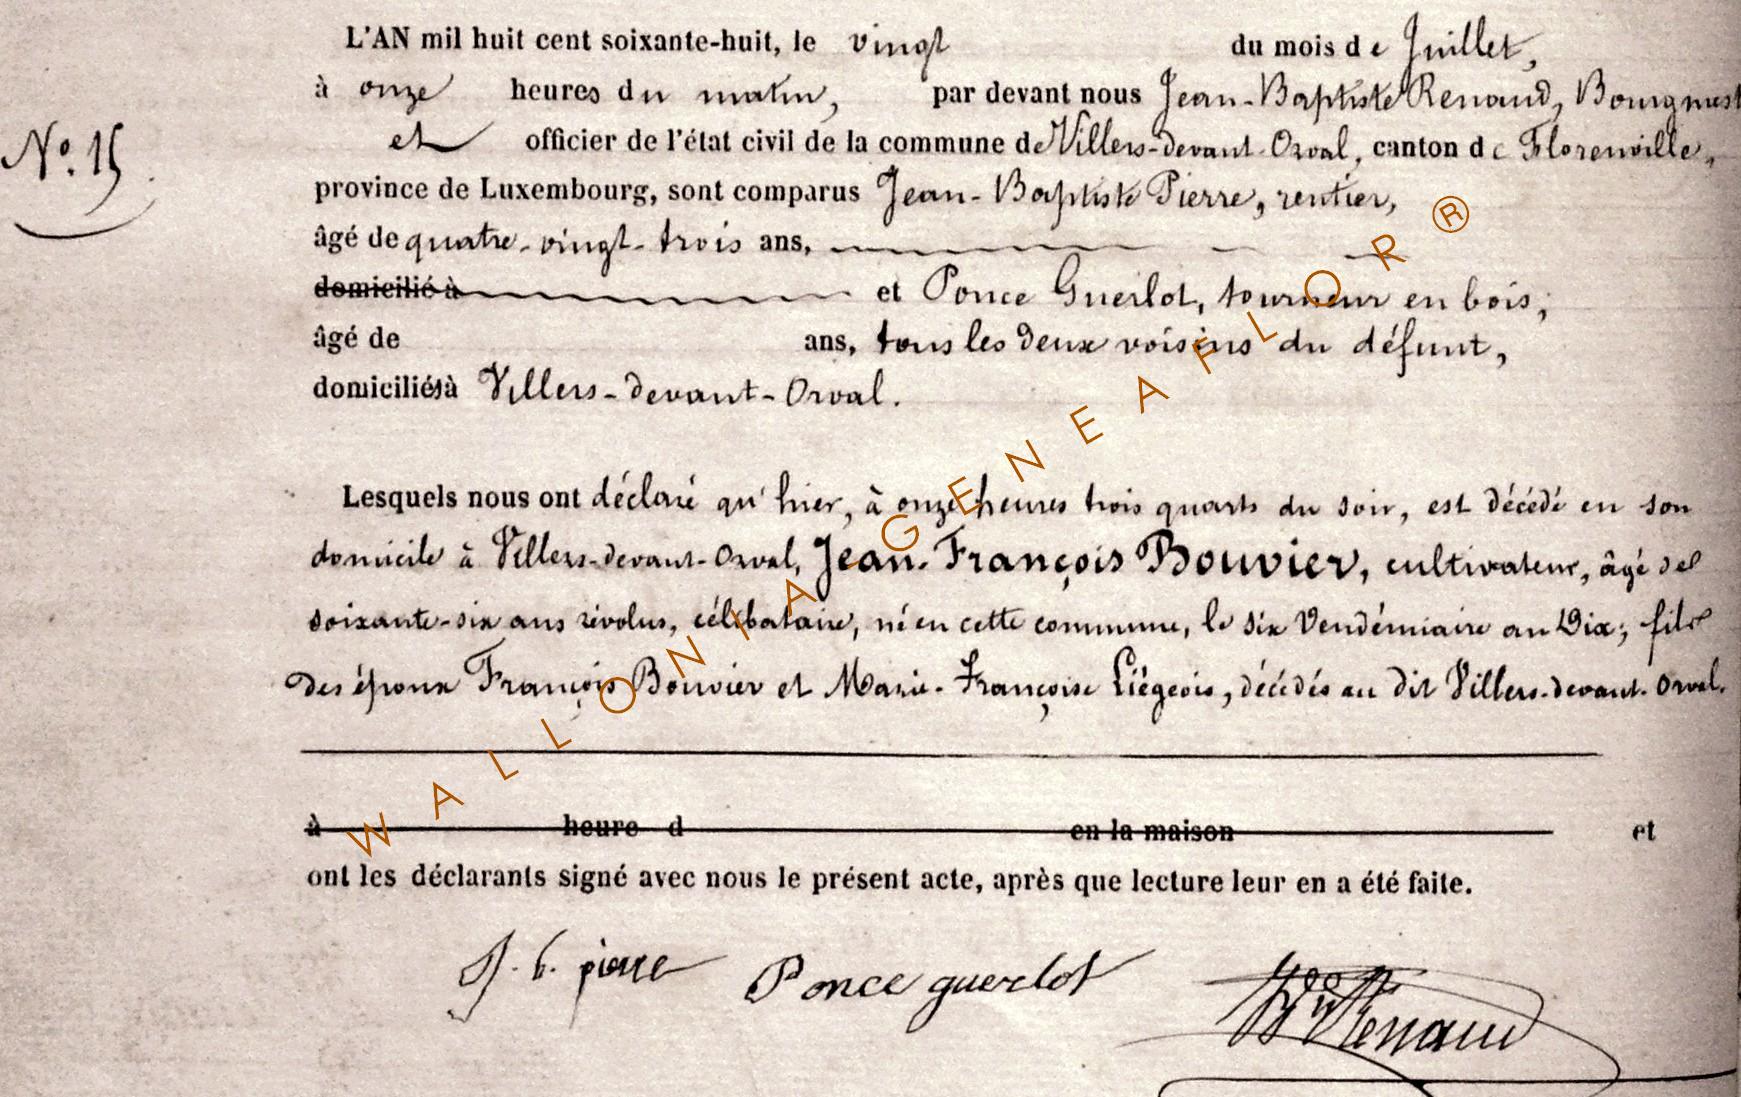 L'AN mil huit cent soixante-huit, le vingt du mois de Juillet,
à onze heures du matin, par devant nous Jean-Baptiste Renaud, Bourgmest
N°. 15
et officier de l'état civil de la commune de Villers-devant-Orval, canton de Florenville,
province de Luxembourg, sont comparus Jean-Baptiste Pierre, rentier,
âgé de quatre-vingt-trois ans,
domicilié à et Ponce Guerlot, tourneur en bois,
âgé de ans, tous les deux voisins du défunt,
domiciliés à Villers-devant-Orval.
Lesquels nous ont déclaré qu'hier, à onze heures trois quarts du soir, est décédé en son
domicile à Villers-devant-Orval, Jean-François Bouvier, cultivateur, âgé de
soixante-six ans révolus, célibataire, né en cette commune, le six Vendémiaire an Dix; fils
des époux François Bouvier et Marie-Françoise Liégeois, décédés au dit Villers-devant-Orval.
à heure d en la maison et
ont les déclarants signé avec nous le présent acte, après que lecture leur en a été faite.
J. b. pierre Ponce guerlot Renaud
WALLONIA-GENEAFLOR®